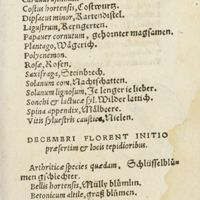 Costus hortensis, Costwurtz.
Dipsacus minor, Kartendistel.
Ligustrum, Reingerten.
Papauer cornutum, gehörnter magsamen.
Plantago, Wägerich.
Polycnemon.
Rosæ, Rosen.
Saxifraga, Steinbrech.
Solanum com. Nachtschatten.
Solanum lignosum, Je lenger ie lieber.
Sonchi & lactucæ syl. Wilder lattich.
Spina appendix, Mälbeere.
Vitis sylvestris caustica, Nielen.
DECEMBRI FLORENT INITIO
præsertim & locis tepidioribus.
Arthriticæ species quædam, Schlüsselblůmen
gschlechter.
Bellis hortensis, Müly blümlin.
Betonicum altile, graß blůmen.